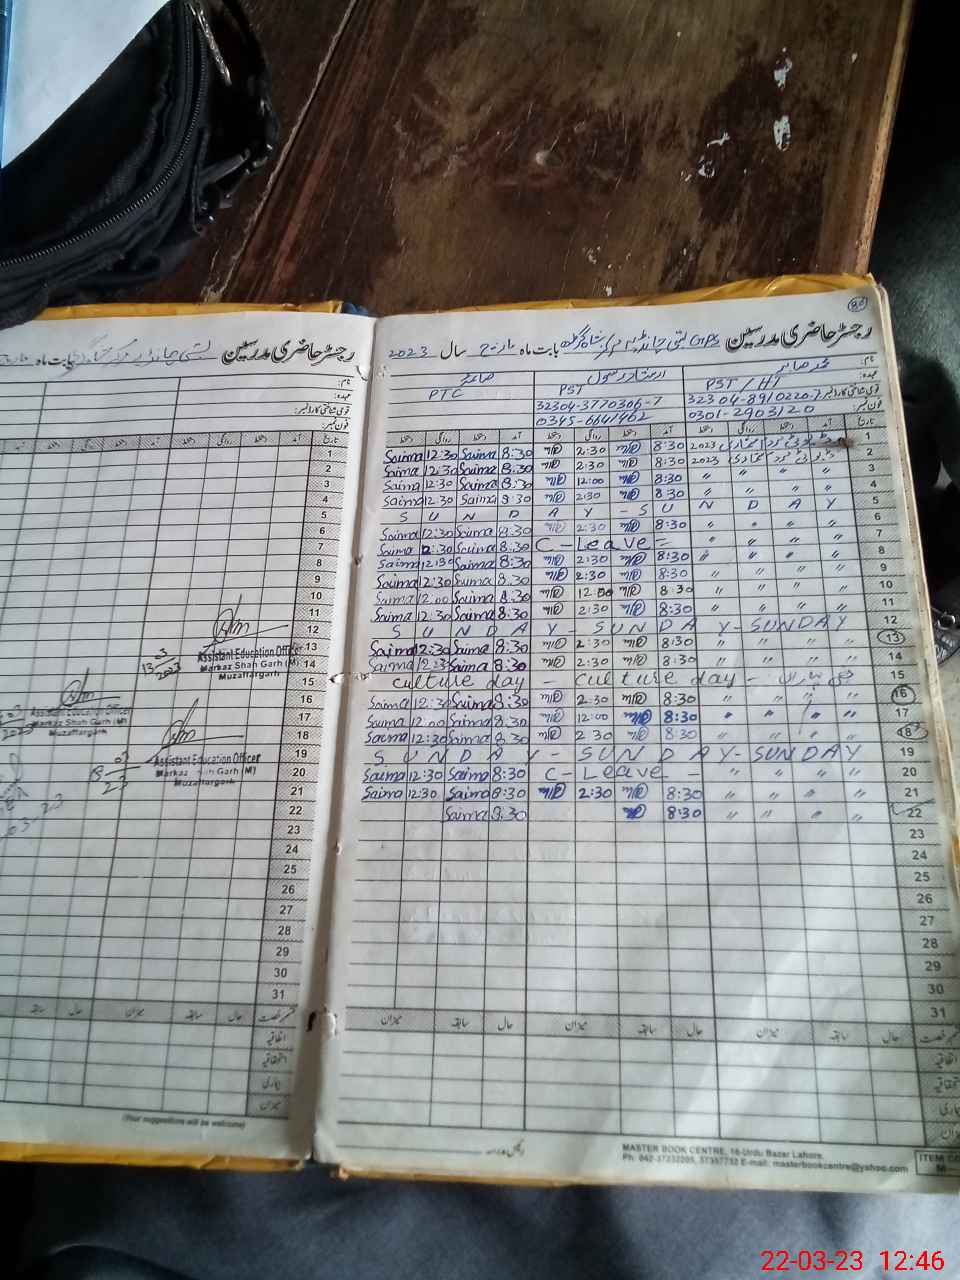 80
رجسٹر حاضری مدرسین GPS بستی چانڈیہ مرکز شاہ گڑھ بابت ماہ مارچ سال 2023
نام: محمد صابر ارشاد رسول صائمہ
عہدہ: PST / HT PST PTC
قومی شناختی کارڈ نمبر: 32304-8910220-7 32304-3770306-7
فون نمبر: 0301-2903120 0345-6641462
تاریخ آمد دستخط روانگی دستخط آمد دستخط روانگی دستخط آمد دستخط روانگی دستخط
Saima 12:30 Saima 8:30 2:30 8:30 2023 1
Saima 12:30 Saima 8:30 2:30 8:30 2023 2
Saima 12:30 Saima 8:30 12:00 8:30 〃 〃 〃 〃 3
Saima 12:30 Saima 8:30 2:30 8:30 〃 〃 〃 〃 4
S U N D A Y - S U N D A Y 5
Saima 12:30 Saima 8:30 2:30 8:30 〃 〃 〃 〃 6
Saima 12:30 Saima 8:30 C - Leave = 〃 〃 〃 〃 7
Saima 12:30 Saima 8:30 2:30 8:30 〃 〃 〃 〃 8
Saima 12:30 Saima 8:30 2:30 8:30 〃 〃 〃 〃 9
Saima 12:00 Saima 8:30 12:00 8:30 〃 〃 〃 〃 10
Saima 12:30 Saima 8:30 2:30 8:30 〃 〃 〃 〃 11
S U N D A Y - SUNDAY - SUNDAY 12
Saima 12:30 Saima 8:30 2:30 8:30 〃 〃 〃 〃 13
Saima 12:30 Saima 8:30 2:30 8:30 〃 〃 〃 〃 14
culture day - culture day - 15
Saima 12:30 Saima 8:30 2:30 8:30 〃 〃 〃 〃 16
Saima 12:00 Saima 8:30 12:00 8:30 〃 〃 〃 〃 17
Saima 12:30 Saima 8:30 2:30 8:30 〃 〃 〃 〃 18
S U N D A Y - SUNDAY - SUNDAY 19
Saima 12:30 Saima 8:30 C - Leave - 〃 〃 〃 〃 20
Saima 12:30 Saima 8:30 2:30 8:30 〃 〃 〃 〃 21
Saima 8:30 8:30 〃 〃 〃 〃 22
23
24
25
26
27
28
29
30
31
حال سابقہ میزان حال سابقہ میزان حال سابقہ میزان
MASTER BOOK CENTRE, 16-Urdu Bazar Lahore.
E-mail: masterbookcentre@yahoo.com
ITEM CO
رجسٹر حاضری مدرسین بستی چانڈیہ مرکز شاہ گڑھ بابت ماہ
نام:
عہدہ:
قومی شناختی کارڈ نمبر:
فون نمبر:
تاریخ آمد دستخط روانگی دستخط
1
2
3
4
5
6
7
8
9
10
11
12
13
14
15
16
17
18
19
20
21
22
23
24
25
26
27
28
29
30
31
13/3/2023
Assistant Education Officer
Markaz Shah Garh (M)
Muzaffargarh
Assistant Education Officer
Markaz Shah Garh (M)
Muzaffargarh
18/03/23
Assistant Education Officer
Markaz Shah Garh (M)
Muzaffargarh
03-23
قسم رخصت حال سابقہ میزان حال سابقہ
اتفاقیہ
استحقاقیہ
بیماری
میزان
(Your suggestions will be welcome)
22-03-23 12:46